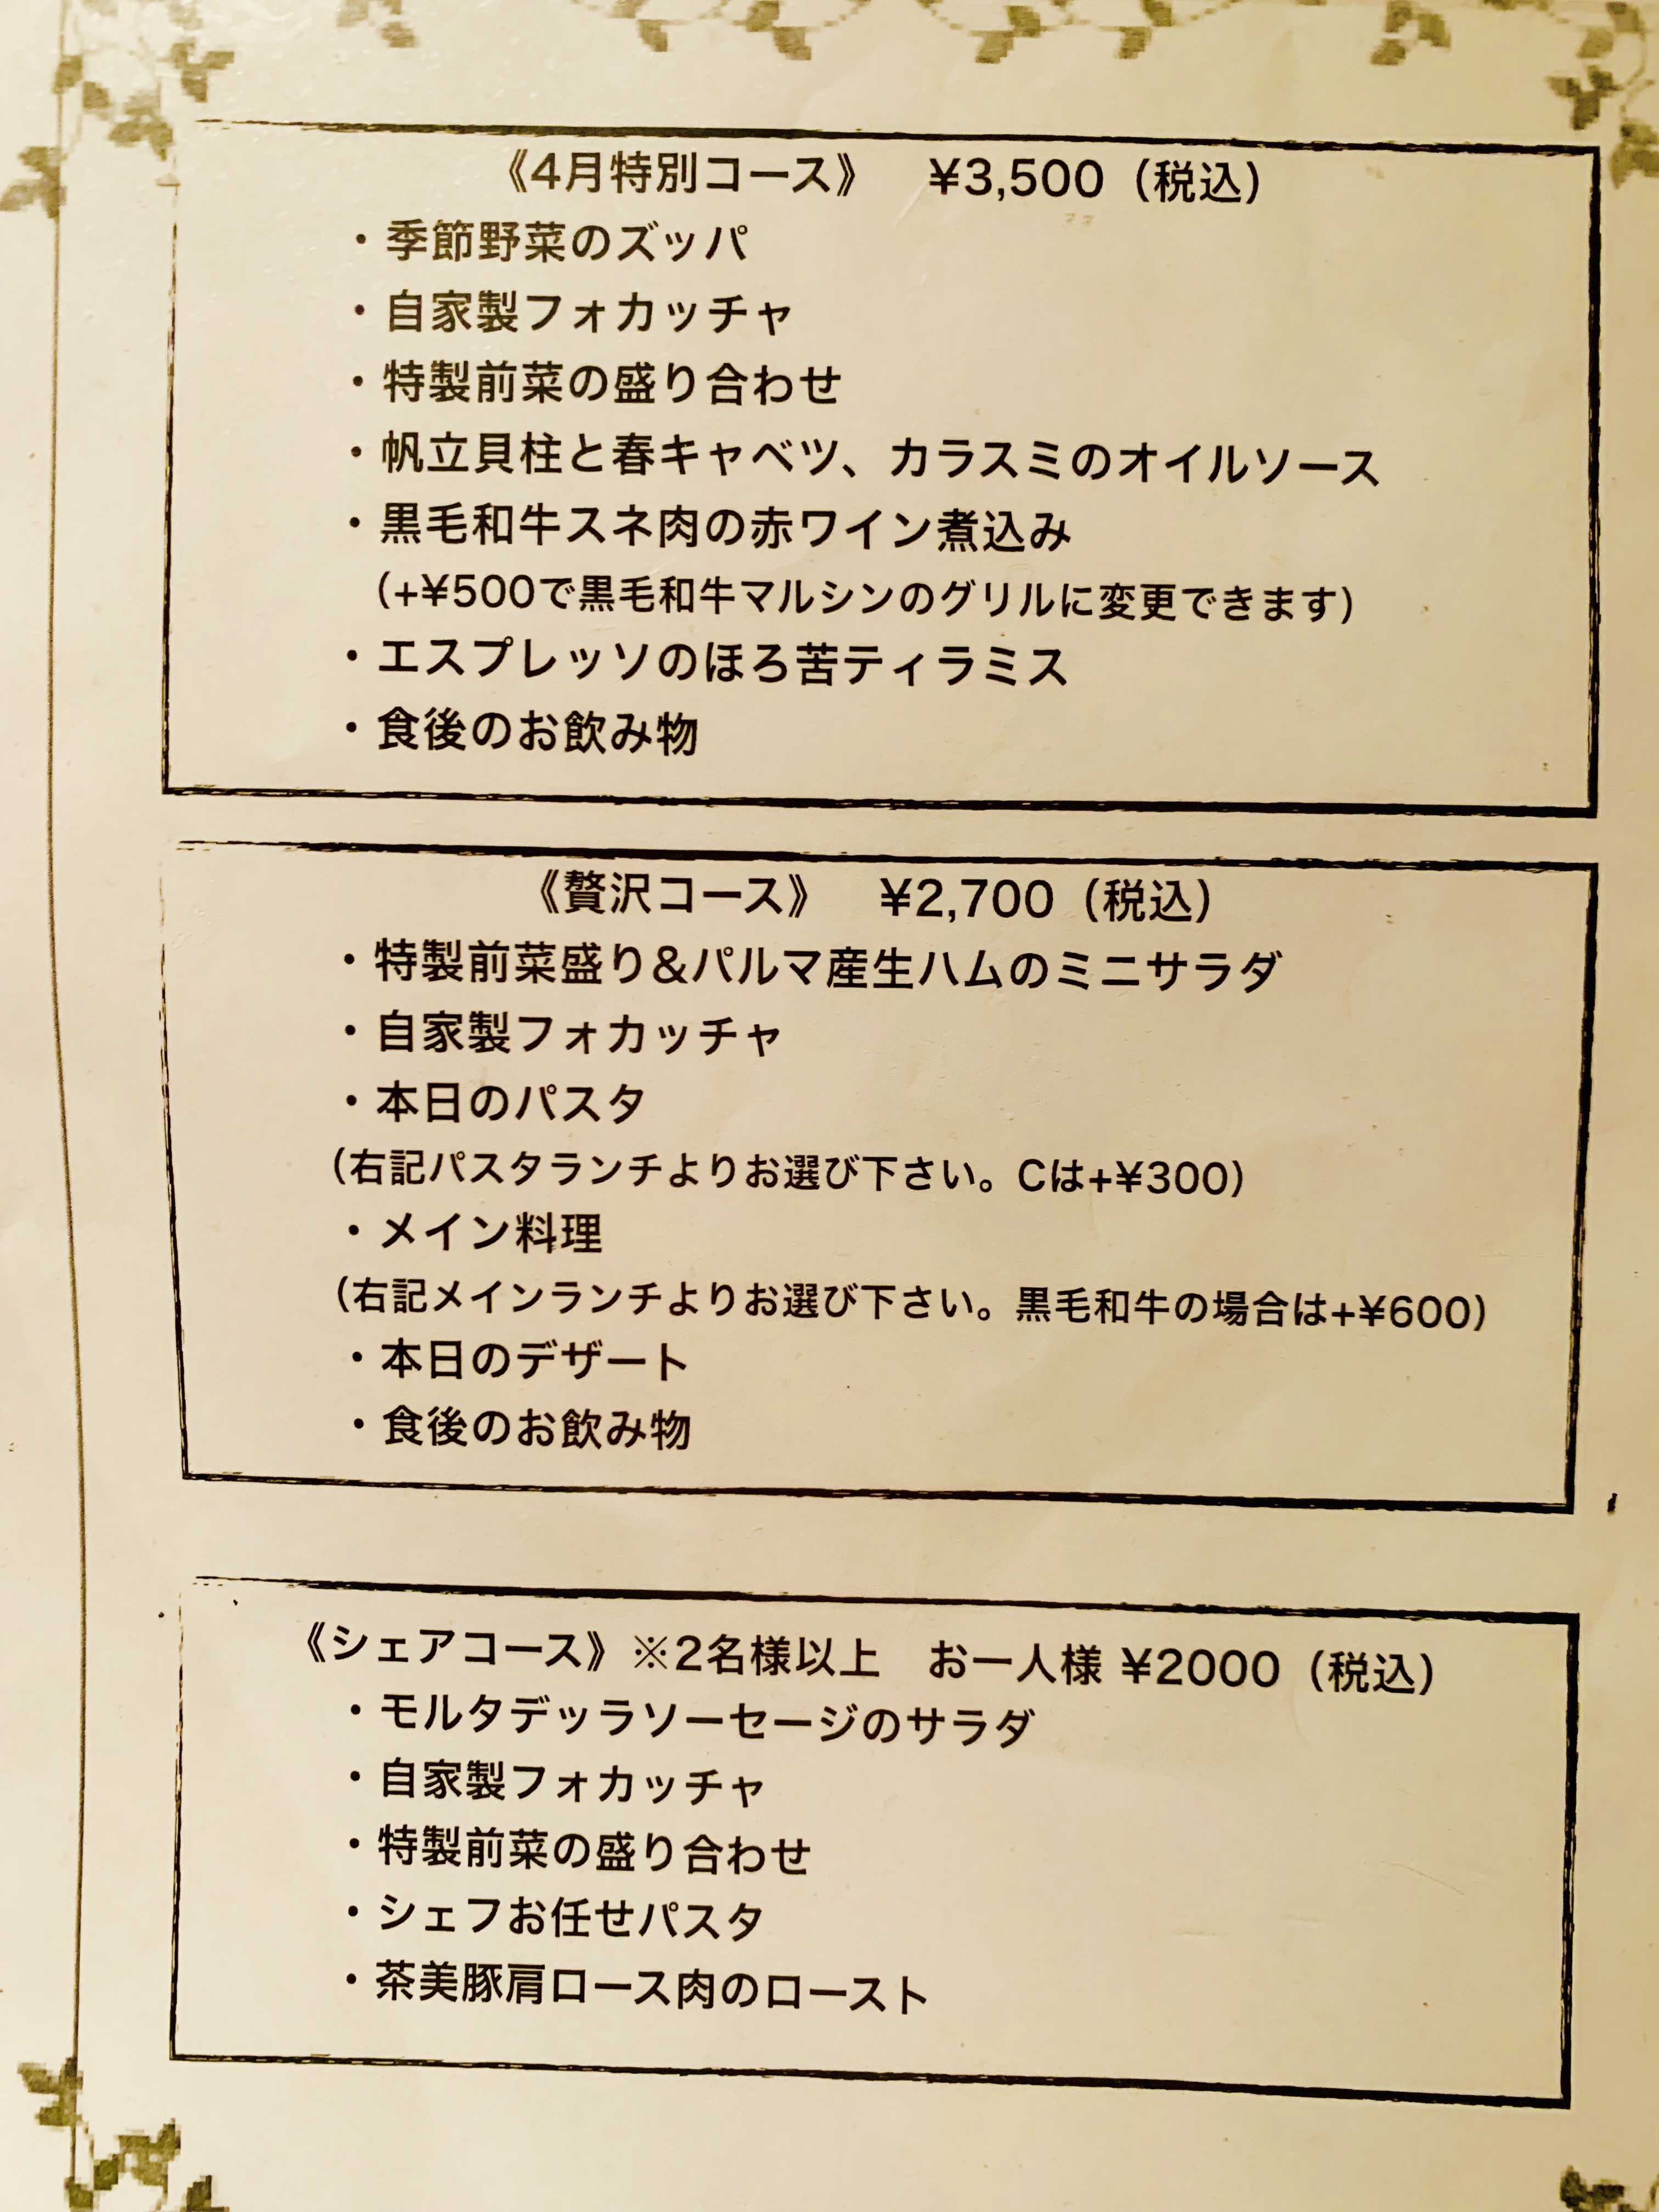 《4月特別コース》　¥3,500（税込）
・季節野菜のズッパ
・自家製フォカッチャ
・特製前菜の盛り合わせ
・帆立貝柱と春キャベツ、カラスミのオイルソース
・黒毛和牛スネ肉の赤ワイン煮込み
（+¥500で黒毛和牛マルシンのグリルに変更できます）
・エスプレッソのほろ苦ティラミス
・食後のお飲み物
《贅沢コース》　¥2,700（税込）
・特製前菜盛り&パルマ産生ハムのミニサラダ
・自家製フォカッチャ
・本日のパスタ
（右記パスタランチよりお選び下さい。Cは+¥300）
・メイン料理
（右記メインランチよりお選び下さい。黒毛和牛の場合は+¥600）
・本日のデザート
・食後のお飲み物
《シェアコース》※2名様以上　お一人様 ¥2000（税込）
・モルタデッラソーセージのサラダ
・自家製フォカッチャ
・特製前菜の盛り合わせ
・シェフお任せパスタ
・茶美豚肩ロース肉のロースト